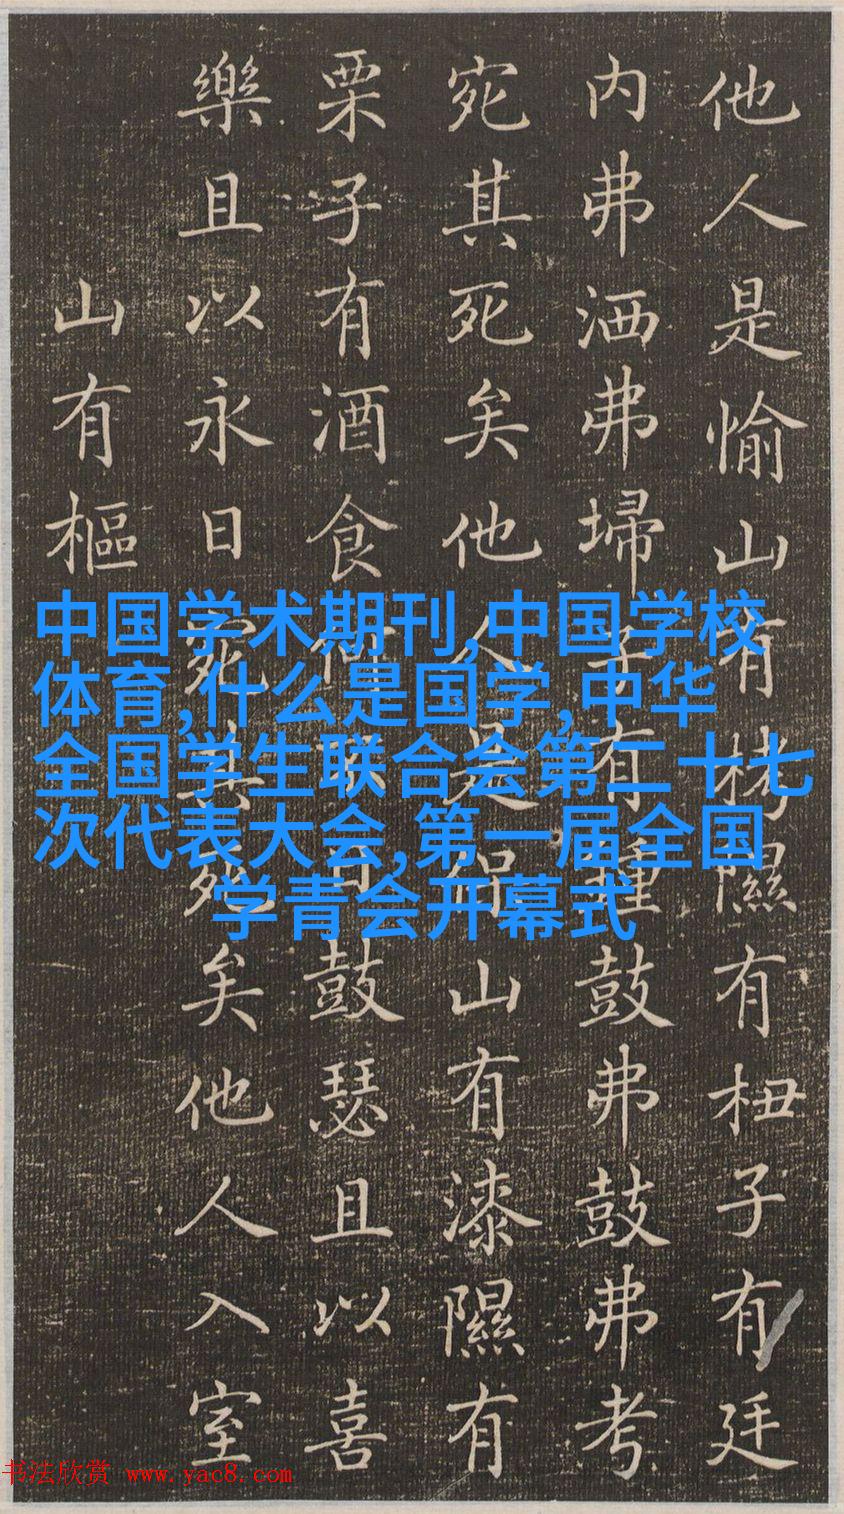 他人是愉山有栲隰有杻子有廷
内弗洒弗埽子有鍾鼓弗鼓弗考
宛其死矣他人是保山有漆隰有
栗子有酒食何不日鼓瑟且以喜
樂且以永日宛其死矣他人入室
山有樞
中国学术期刊,中国学校
体育,什么是国学,中华
全国学生联合会第二十七
次代表大会,第一届全国
学青会开幕式
书法欣赏 www.yac8.com